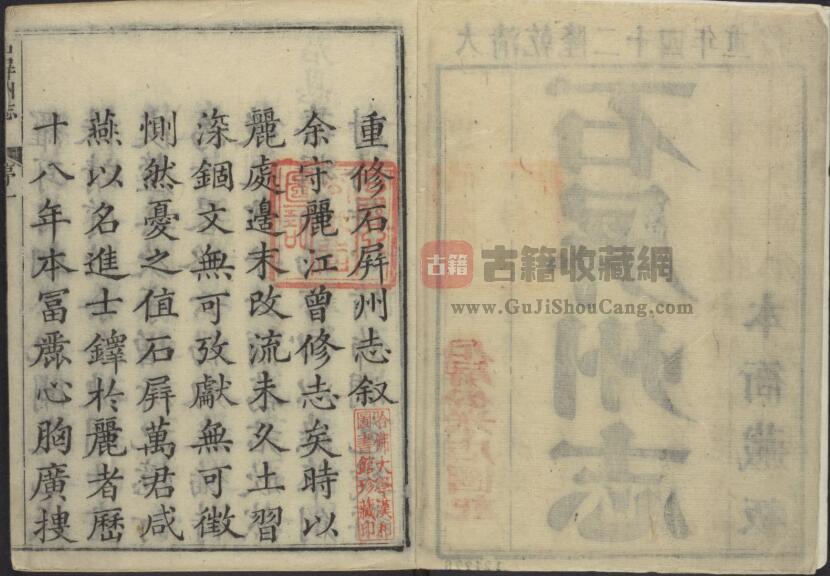 大清乾隆二十四年重
石屏州志
本衙藏板
重修石屏州志叙
余守麗江曾修志矣時以
麗處邊末改流未久土習
深錮文無可攷獻無可徵
惻然憂之值石屏萬君咸
燕以名進士鐸於麗者歷
十八年本冨麗心胸廣捜
石屏州志
序一
哈佛大學漢和
圖書館珍藏印
古籍
古籍收藏網
www.GuJiShouCang.com